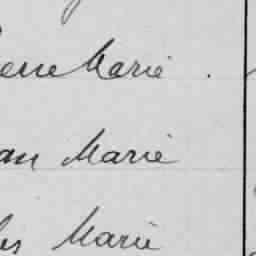 erre Marie .
an Marie
les Marie